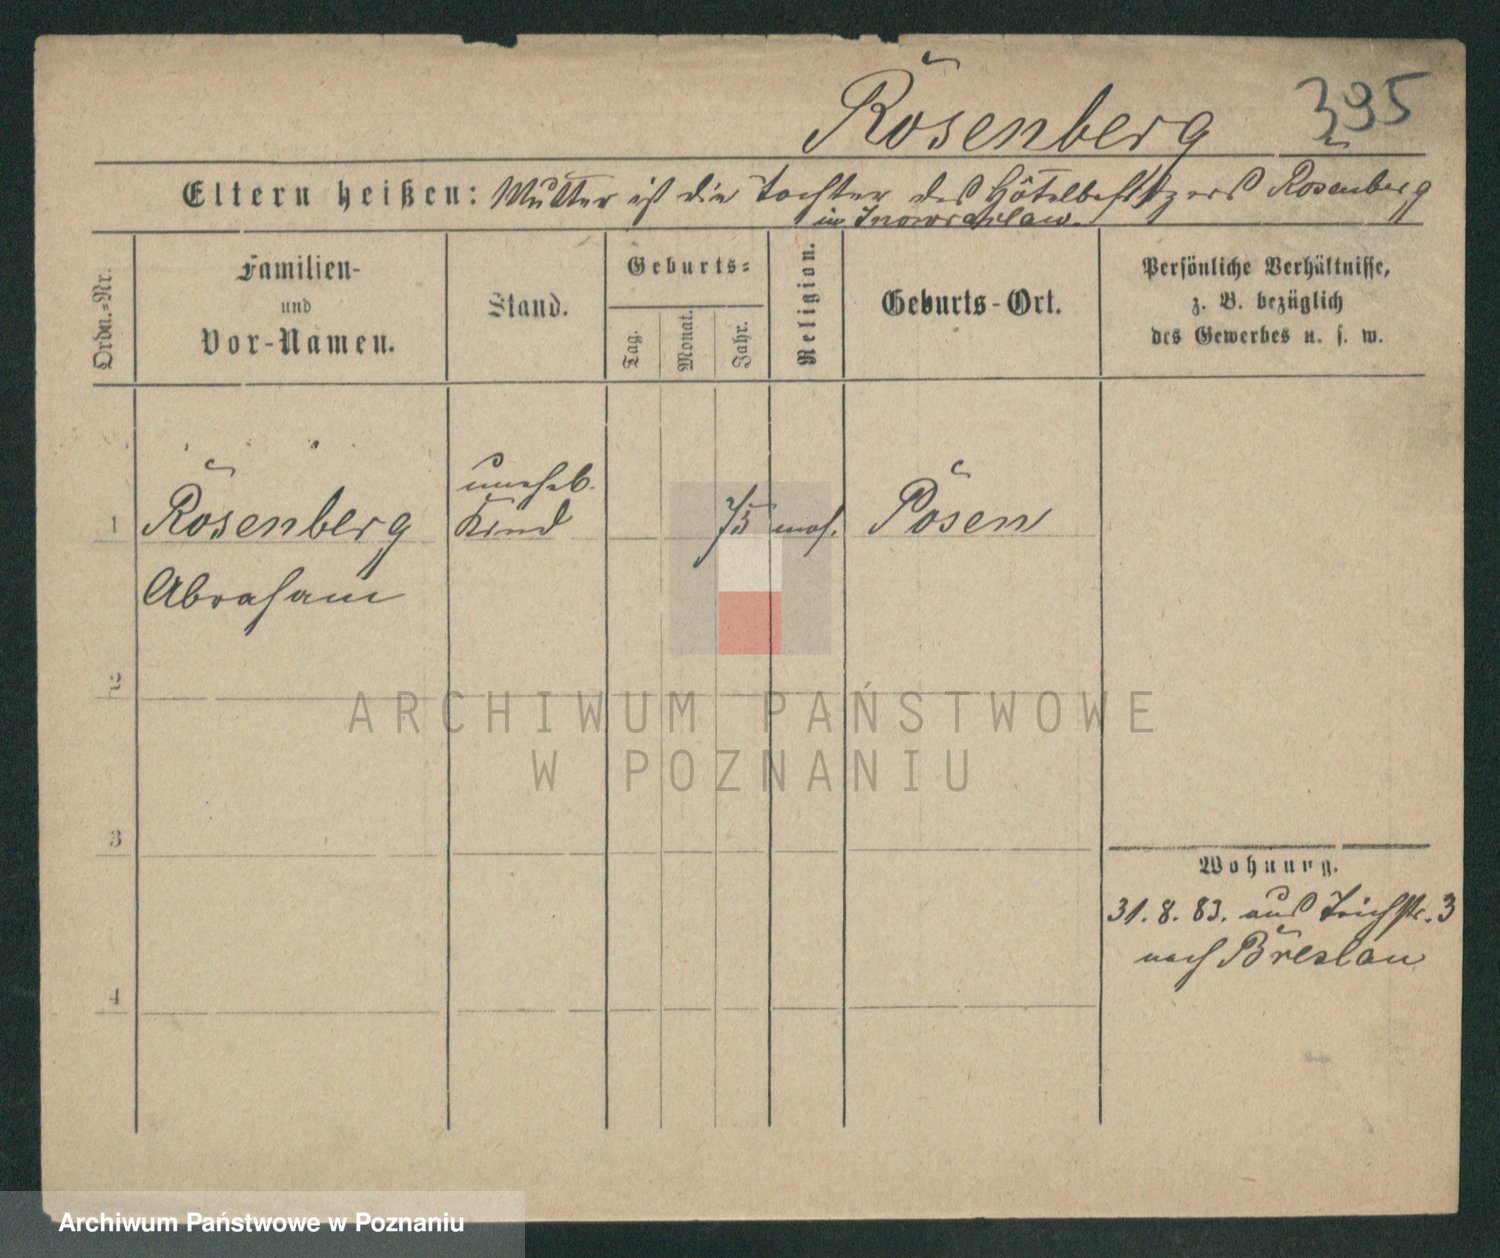 Rosenberg
395
Eltern heißen: Mutter ist die Tochter des Hôtelbesitzers Rosenberg
in Inowrazlaw.
Ordn.-Nr.
Familien-
und
Vor-Namen.
Stand.
Geburts-
Tag.
Monat.
Jahr.
Religion.
Geburts-Ort.
Persönliche Verhältnisse,
z. B. bezüglich
des Gewerbes u. s. w.
unehel.
1 Rosenberg Kind mos. Posen
Abraham
2
ARCHIWUM PAŃSTWOWE
W POZNANIU
3
Wohnung.
31. 8. 83. aus 3
nach Breslau
4
Archiwum Państwowe w Poznaniu